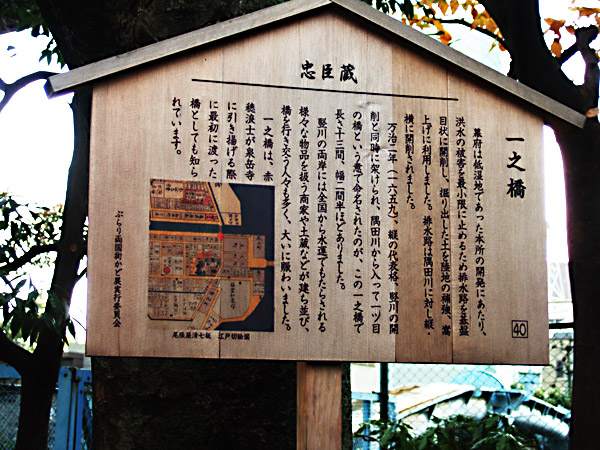 忠臣蔵
一之橋
幕府は低湿地であった本所の開発にあたり、
洪水の被害を最小限に止めるため排水路を碁盤
目状に開削し、掘り出した土を陸地の補強、嵩
上げに利用しました。排水路は隅田川に対し縦・
横に開削されました。
万治二年（一六五九）、縦の代表格、竪川の開
削と同時に架けられ、隅田川から入って一ツ目
の橋という意で命名されたのが、この一之橋で
長さ十三間、幅二間半ほどありました。
竪川の両岸には全国から水運でもたらされる
様々な物品を扱う商家や土蔵などが建ち並び、
橋を行き交う人々も多く、大いに賑わいました。
一之橋は、赤
穂浪士が泉岳寺
に引き揚げる際
に最初に渡った
橋としても知ら
れています。
尾張屋清七板 江戸切絵図
ぶらり両国街かど展実行委員会
40